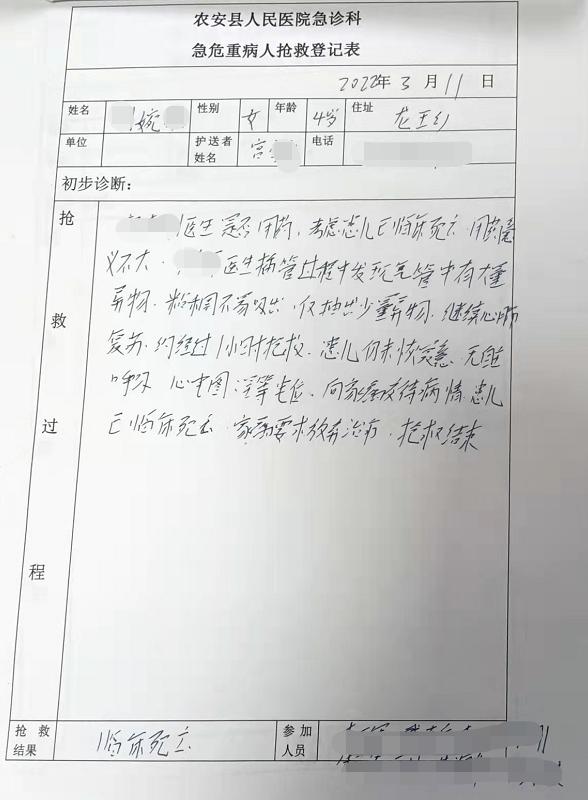 农安县人民医院急诊科
急危重病人抢救登记表
2022年3月11日
姓名 婉 性别 女 年龄 4岁 住址 龙王乡
单位 护送者姓名 宫 电话
初步诊断:
抢救过程
医生是否用药,考虑患儿已临床死亡,用药意
义不大. 医生插管过程中发现气管中有大量
异物,粘稠不易吸出,仅抽出少量异物,继续心肺
复苏,约经过1小时抢救,患儿仍未恢复意, 无自
呼吸 心电图:等电位,向家属交待病情患儿
已临床死亡,家属要求放弃治疗,抢救结束
抢救结果 临床死亡 参加人员